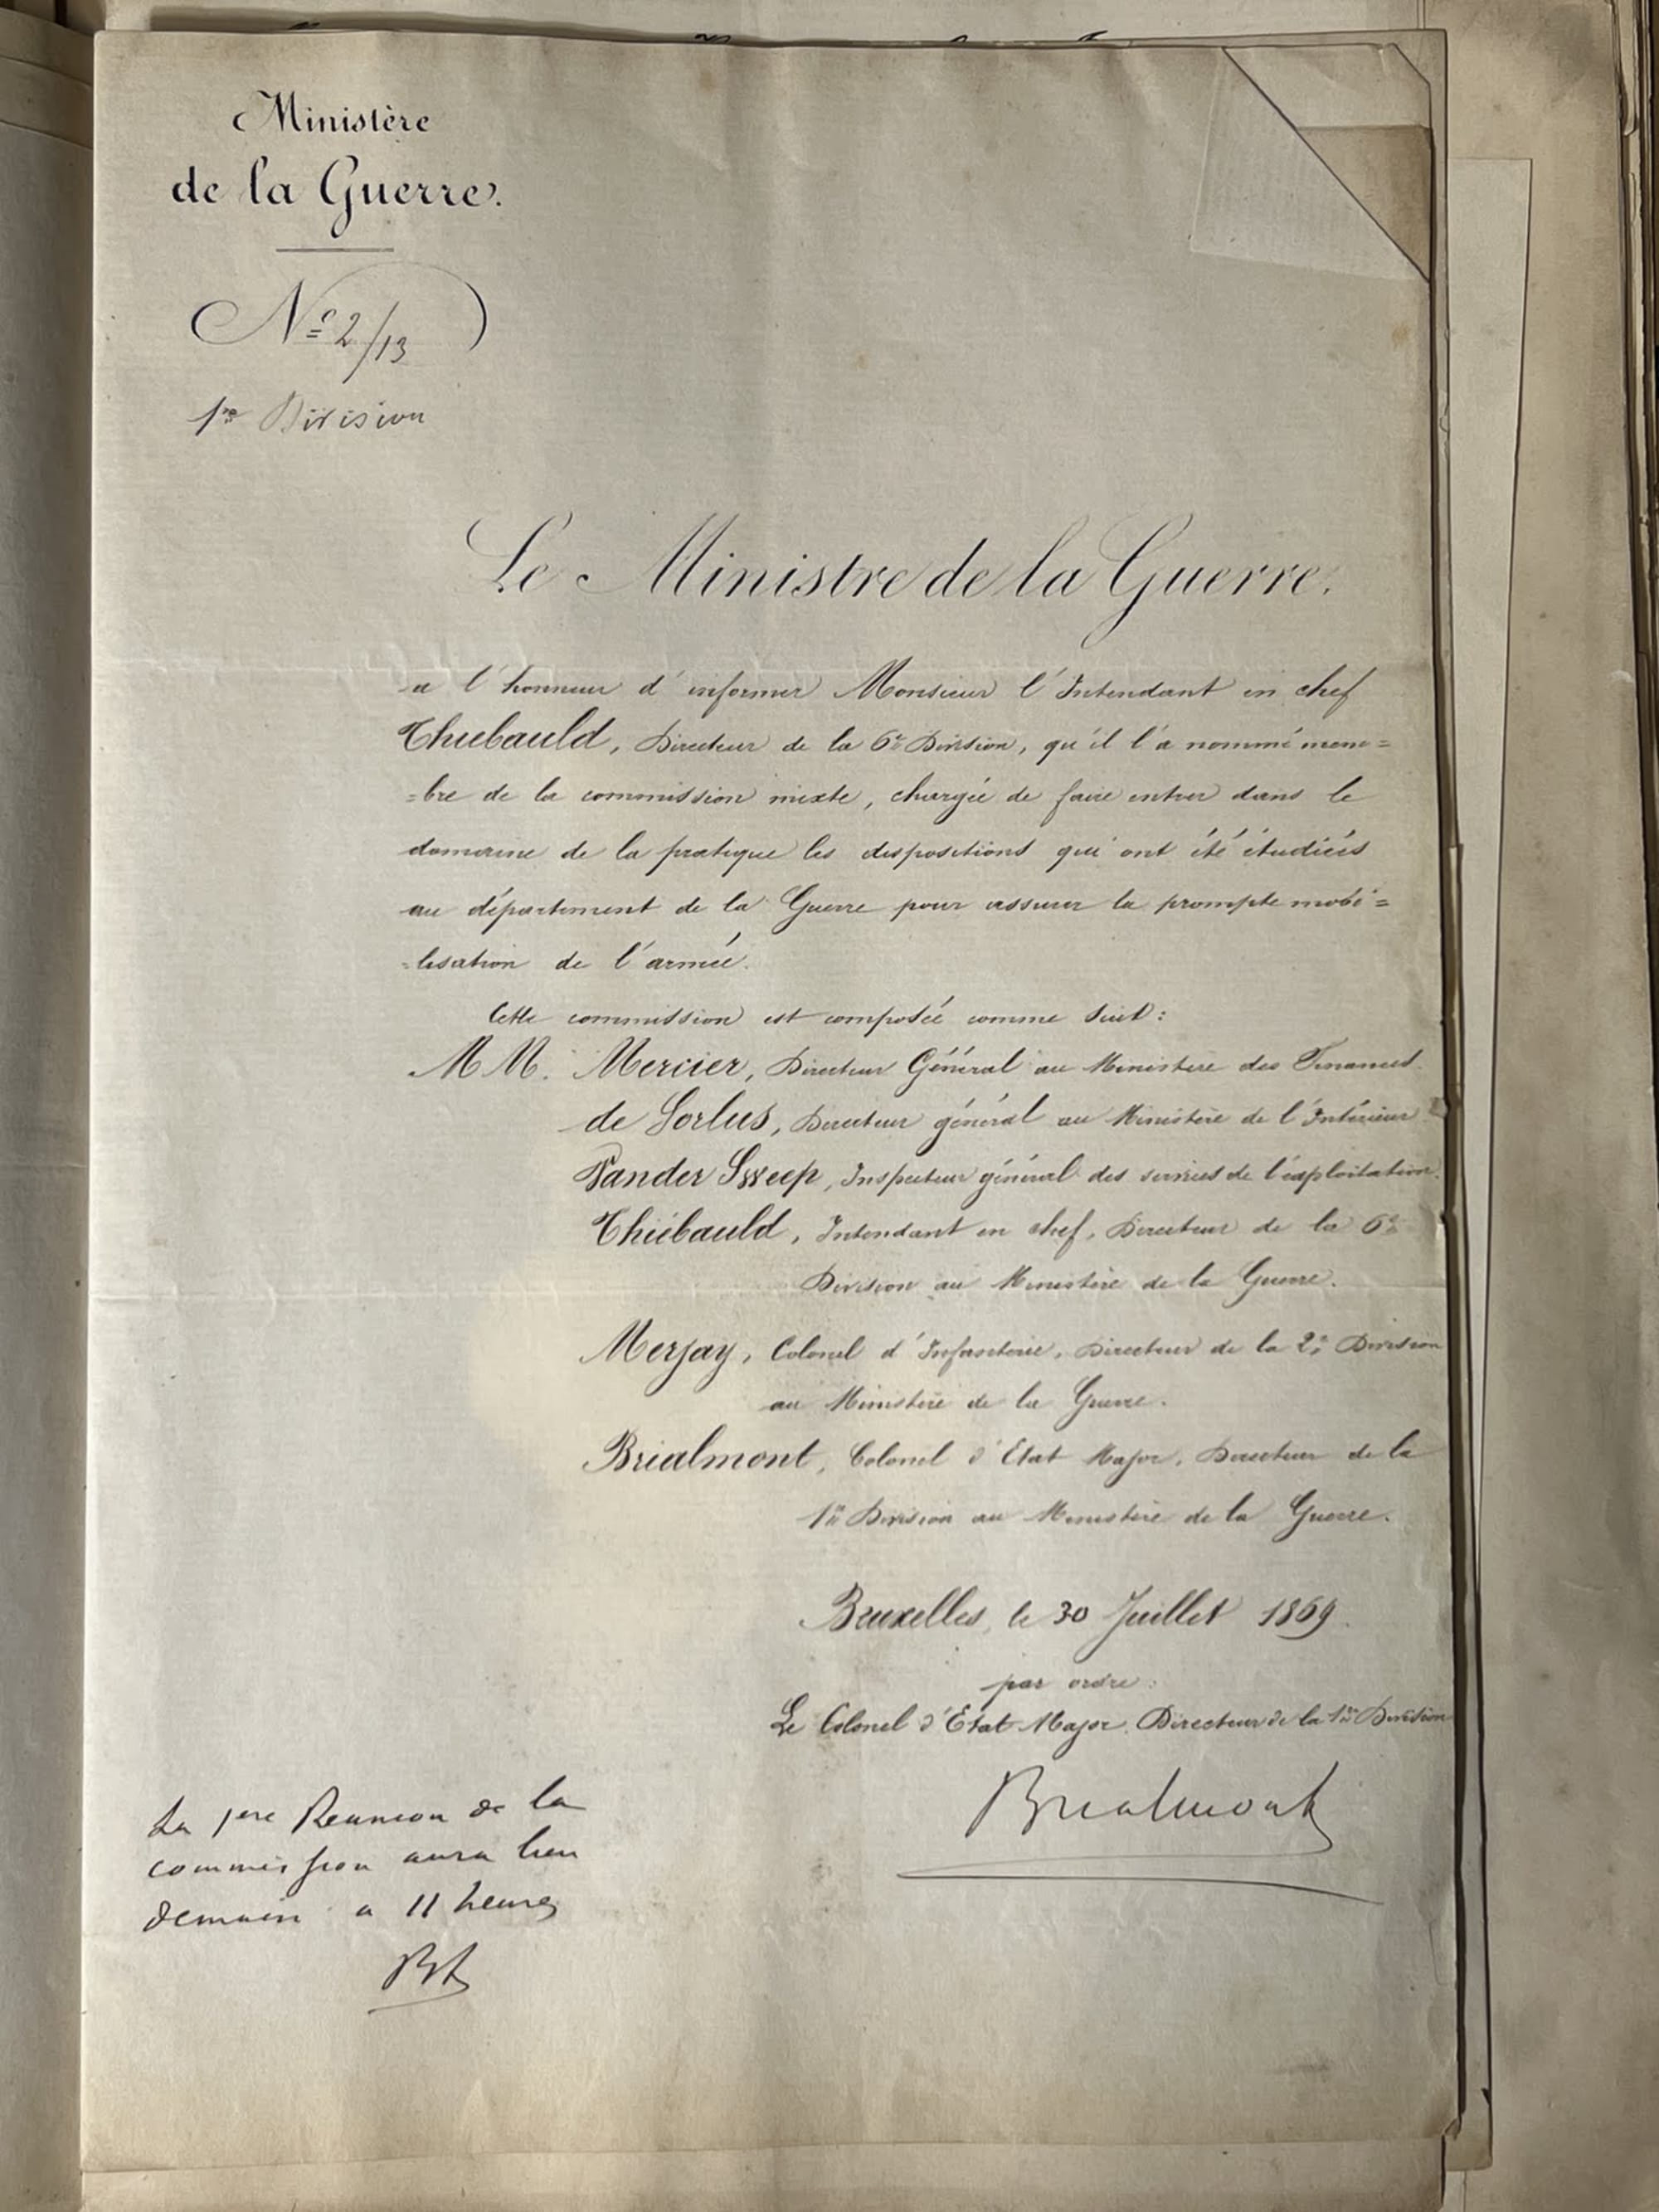 Ministère
de la Guerre.
Nº 2/13
1re Division
Le Ministre de la Guerre.
a l'honneur d'informer Monsieur l'Intendant en chef
Thiebauld, Directeur de la 6e Division, qu'il l'a nommé mem=
=bre de la commission mixte, chargée de faire entrer dans le
domaine de la pratique les dispositions qui ont été étudiées
au département de la Guerre pour assurer la prompte mobi=
=lisation de l'armée.
Cette commission est composée comme suit:
MM. Mercier, Directeur Général au Ministère des Finances.
de Sorlus, Directeur général au Ministère de l'Intérieur
Vander Sweep, Inspecteur général des services de l'exploitation.
Thiébauld, Intendant en chef, Directeur de la 6e
Division au Ministère de la Guerre.
Merjay, Colonel d'Infanterie, Directeur de la 2e Division
au Ministère de la Guerre.
Brialmont, Colonel d'Etat Major, Directeur de la
1re Division au Ministère de la Guerre.
Bruxelles, le 30 Juillet 1869.
par ordre:
Le Colonel d'Etat-Major, Directeur de la 1re Division
Brialmont
La 1ere Reunion de la
commission aura lieu
demain a 11 heures
Bt